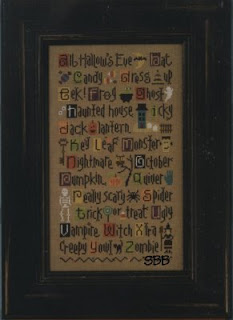 All Hallow's Eve Bat
Candy dress up
Eek! Frog Ghost
haunted house icky
Jack lantern
Key Leaf Monster
Nightmare October
Pumpkin Quiver
Really scary Spider
trick or treat Ugly
Vampire Witch Xtra
Creepy Yowl Zombie
SBB